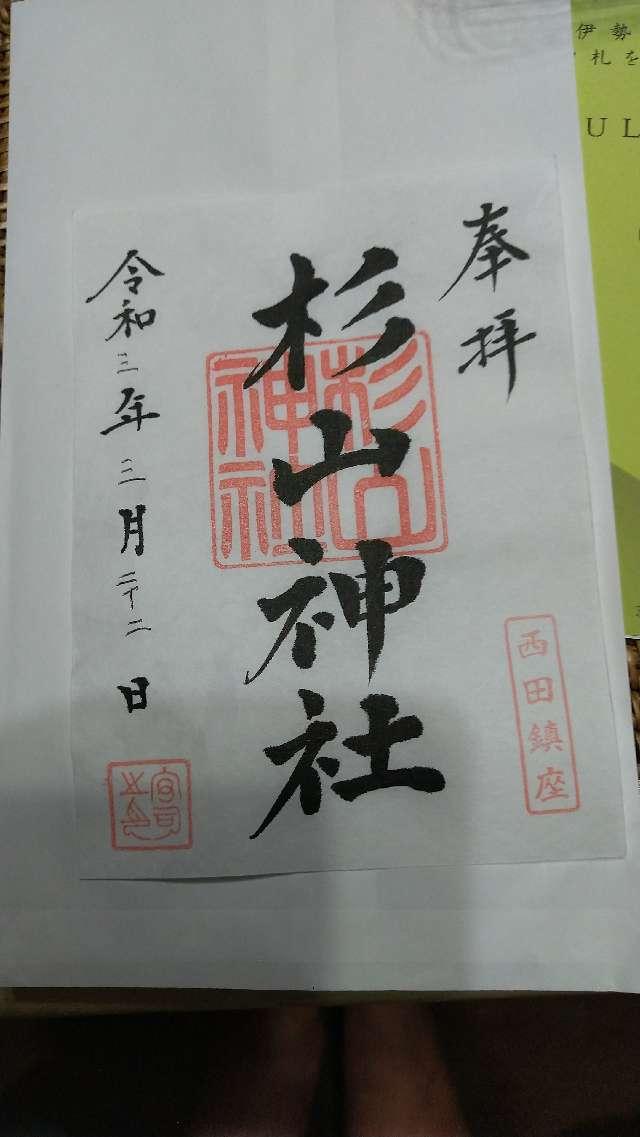 奉拝
杉山神社
杉山
神社
西田鎮座
令和三年三月二十二日
宮司
之印
伊勢
札を
UL